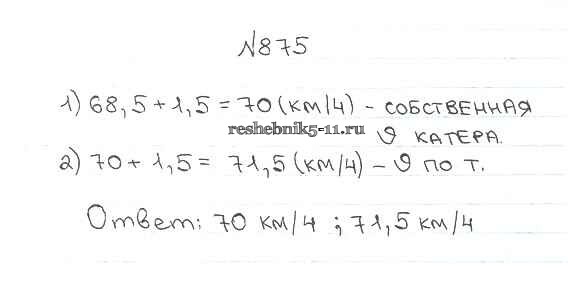 №875
1) 68,5 + 1,5 = 70 (км/ч) - собственная
reshebnik5-11.ru
υ катера.
2) 70 + 1,5 = 71,5 (км/ч) - υ по т.
Ответ: 70 км/ч ; 71,5 км/ч